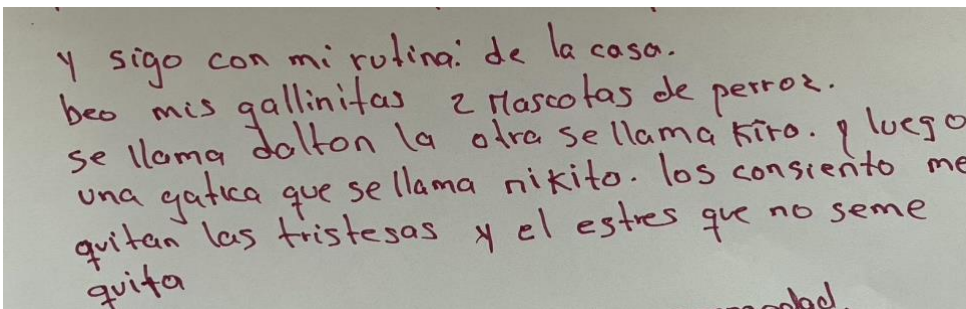 y sigo con mi rutina: de la casa.
beo mis gallinitas 2 Mascotas de perros.
se llama dalton la otra se llama Kiro. y luego
una gatica que se llama nikito. los consiento me
quitan las tristesas y el estres que no seme
quita